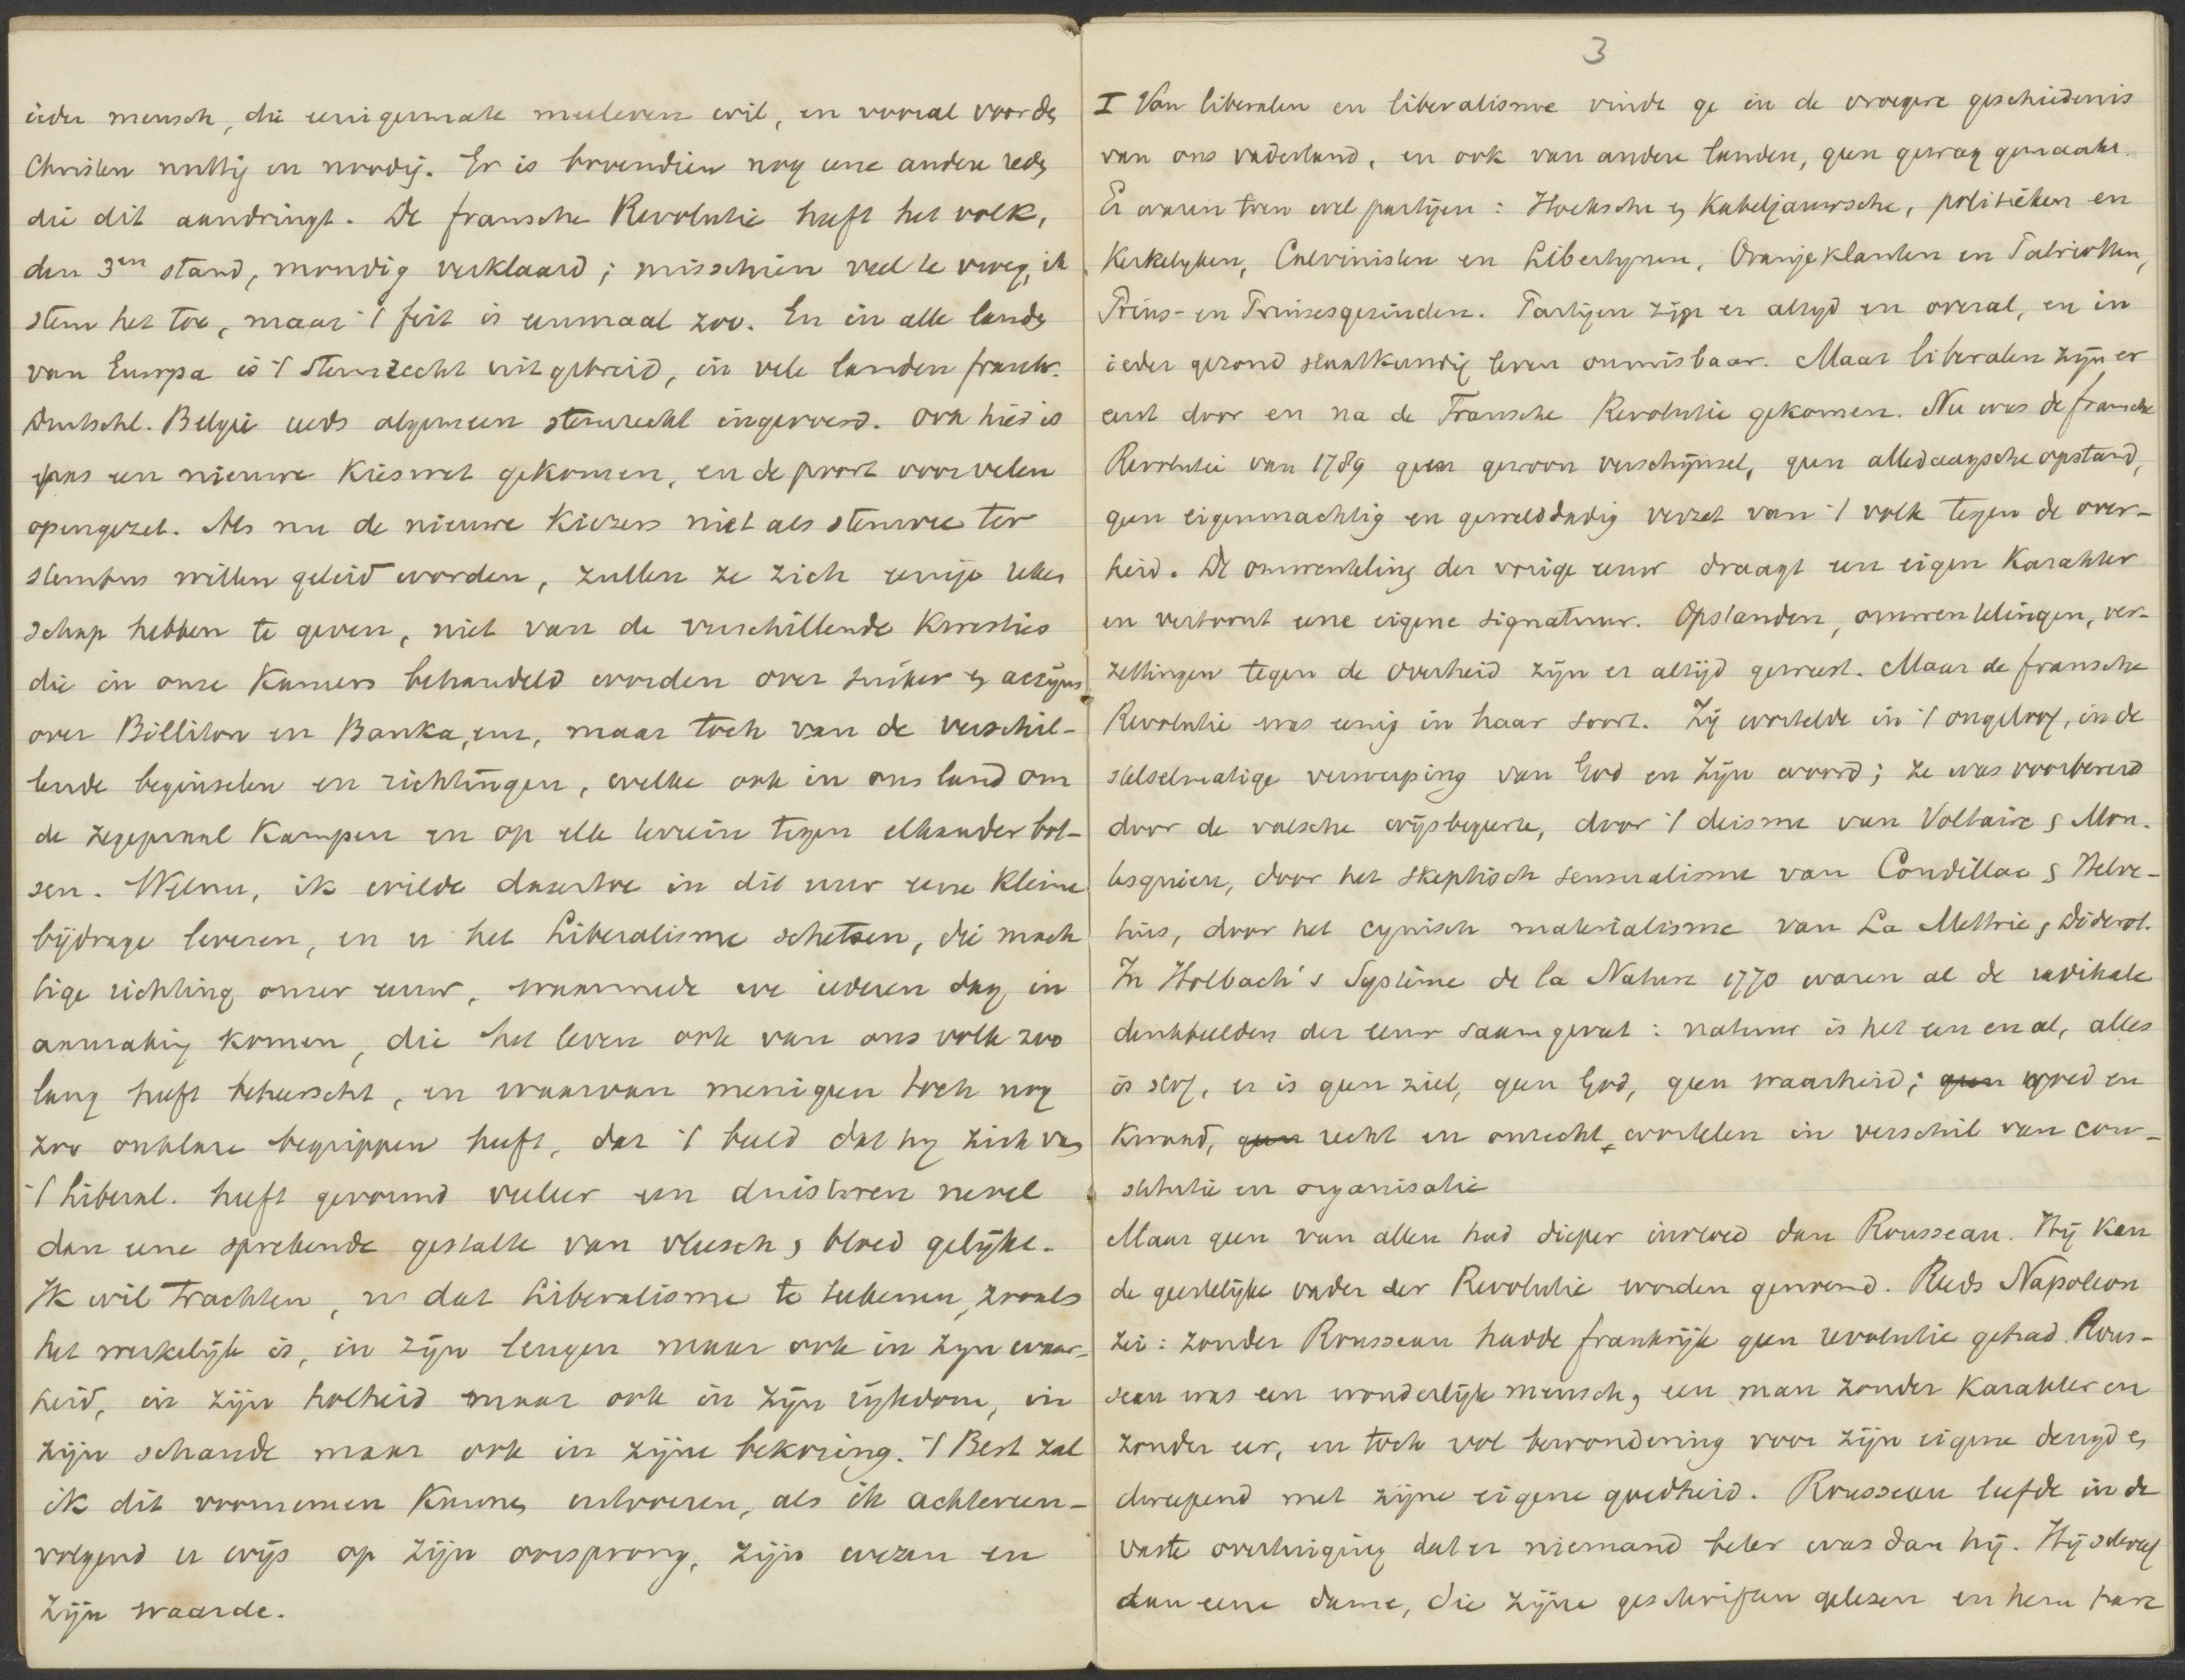 ieder mensch, die eenigermate meeleven wil, en vooral voor de
Christen nuttig en noodig. Er is bovendien nog eene andere rede
die dit aandringt. De fransche Revolutie heeft het volk,
den 3en stand, mondig verklaard; misschien veel te vroeg, ik
stem het toe, maar 't feit is eenmaal zoo. En in alle landen
van Europa is 't stemrecht uitgebreid, in vele landen frankr.
Duitschl. België reeds algemeen stemrecht ingevoerd. Ook hier is
pas een nieuwe Kieswet gekomen, en de poort voor velen
opengezet. Als nu de nieuwe Kiezers niet als stemvee ter
stembus willen geleid worden, zullen ze zich eenige reken
schap hebben te geven, niet van de verschillende Kwesties
die in onze Kamers behandeld worden over suiker en accijns
over Billiton en Banka, enz, maar toch van de verschil-
lende beginselen en richtingen, welke ook in ons land om
de zegepraal Kampen en op elk terrein tegen elkander bot-
sen. Welnu, ik wilde daartoe in dit uur eene kleine
bijdrage leveren, en u het Liberalisme schetsen, die mach
tige richting onzer eeuw, waarmede we iederen dag in
aanraking komen, die het leven ook van ons volk zoo
lang heeft beheerscht, en waarvan menigeen toch nog
zoo onklare begrippen heeft, dat 't beeld dat hij zich van
't Liberal. heeft gevormd veeleer een duisteren nevel
dan eene sprekende gestalte van vleesch en bloed gelijke.
Ik wil trachten, u dat Liberalisme te teekenen, zooals
het werkelijk is, in zijn leugen maar ook in zijn waar-
heid, in zijn holheid maar ook in zijn rijkdom, in
zijn schande maar ook in zijne bekoring. 't Best zal
ik dit voornemen Kunnen uitvoeren, als ik achtereen-
volgend u wijs op zijn oorsprong, zijn wezen en
zijn waarde.
3
I Van liberalen en liberalisme vinde ge in de vroegere geschiedenis
van ons vaderland, en ook van andere landen, geen gewag gemaakt.
Er waren toen wel partijen: Hoeksche en Kabeljauwsche, politieken en
Kerkelyken, Calvinisten en Libertynen, Oranjeklanten en Patriotten,
Prins- en Prinsesgezinden. Partijen zijn er altyd en overal, en in
ieder gezond staatkundig leven onmisbaar. Maar liberalen zijn er
eerst door en na de Fransche Revolutie gekomen. Nu was de fransche
Revolutie van 1789 geen gewoon verschijnsel, geen alledaagsche opstand,
geen eigenmachtig en gewelddadig verzet van 't volk tegen de over-
heid. De omwenteling der vorige eeuw draagt een eigen Karakter
en vertoont eene eigene signatuur. Opstanden, omwentelingen, ver-
zettingen tegen de Overheid zijn er altijd geweest. Maar de fransche
Revolutie was eenig in haar soort. Zij wortelde in 't ongeloof, in de
stelselmatige verwerping van God en Zijn woord; ze was voorbereid
door de valsche wijsbegeerte, door 't deisme van Voltaire en Mon-
tesquieu, door het skeptisch sensualisme van Condillac en Helve-
tius, door het cynisch materialisme van La Mettrie, Diderot.
In Holbach's Système de la Nature 1770 waren al de radikale
denkbeelden der eeuw saamgevat: natuur is het een en al, alles
is stof, er is geen ziel, geen God, geen waarheid; geen goed en
Kwaad, geen recht en onrecht wortelen in verschil van con-
stitutie en organisatie
Maar geen van allen had dieper invloed dan Rousseau. Hij Kan
de geestelijke vader der Revolutie worden genoemd. Reeds Napoleon
zei: zonder Rousseau hadde frankrijk geen revolutie gehad. Rous-
seau was een wonderlijk mensch, een man zonder Karakter en
zonder eer, en toch vol bewondering voor zijn eigene deugd en
dweepend met zijne eigene goedheid. Rousseau leefde in de
vaste overtuiging dat er niemand beter was dan hij. Hij schreef
aan eene dame, die zijne geschriften gelezen en hem hare